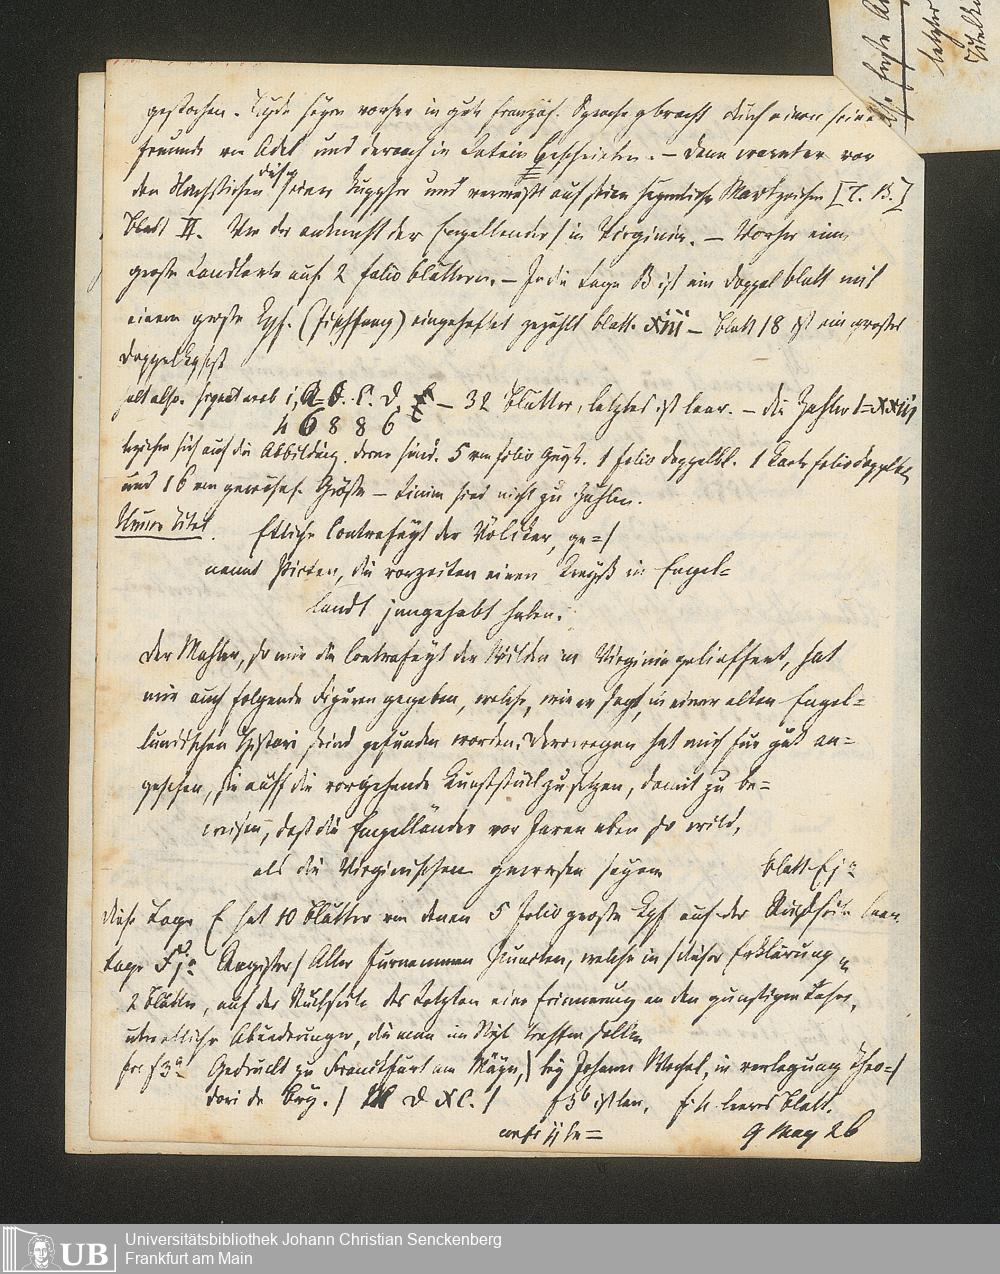 gestochen. Tüde seyn vorher in gute französ. Sprache gebracht durch einen seine
freunde von Adel und darnach in Latein beschrieben. — Dann
den Nachstichen dise seinen Kuppfer und auf seine Markzeichen [T. B.]
Blatt II. Von der ankunfft der Engellender / in Virginia. — Vorher eine
große Landkarte auf 2 folio blättern. — In die Lage B ist ein doppel blatt mit
einem große Kpf. (Fischfang) eingeheftet gezählt blatt. xiii — blatt 18 ist ein großes
doppelkpfst
A. B. C. D. E — 32 blätter, letztes ist leer. — die Zahlen I=XXiii
4 6 8 8 6
beziehen sich auf die Abbildung. deren sind. 5 von folio Größe. 1 folio doppelbl. 1 Karte folio doppelbl.
und 16 von gewöhnl. Größe — Linien sind nicht zu zählen.
Neuer Titel. Etliche Contrafeyt der Völcker, ge=/
nannt Picten, die vorzeiten einen Kreyß in Engel=
landt jnngehabt haben.
Der Mahler, so mir die Contrafeyt der Wilden in Virginia gelieffert, hat
mir auch folgende Figuren gegeben, welche, wie er sagt, in einer alten Engel=
ländischen Histori seind gefunden worden. Derowegen hat mich für gut an=
gesehen, sie auff die vorgehende Kunststück zu setzen, damit zu be=
weisen, daß die Engelländer vor Jaren eben so wild,
als die Virginischen gewesen seyen blatt Ej a
diese Lage E hat 10 blätter von denen 5 folio große Kpf auf der Rückseite leer.
Lage Fj a Register / Aller fürnemmen Puncten, welche in dieser Erklärung
2 blätter, auf der Rückseite des letzten eine Erinnerung an den günstigen Leser,
etliche Abenderunge, die man im Rest treffen sollen
f3 a Gedruckt zu Franckfurt am Mäyn, / bey Johann Wechel, in verlegung Theo=/
dori de Bry. / M D XC. / f3 b ist leer, f4 leeres blatt.
9 May 26
Universitätsbibliothek Johann Christian Senckenberg
Frankfurt am Main
UB